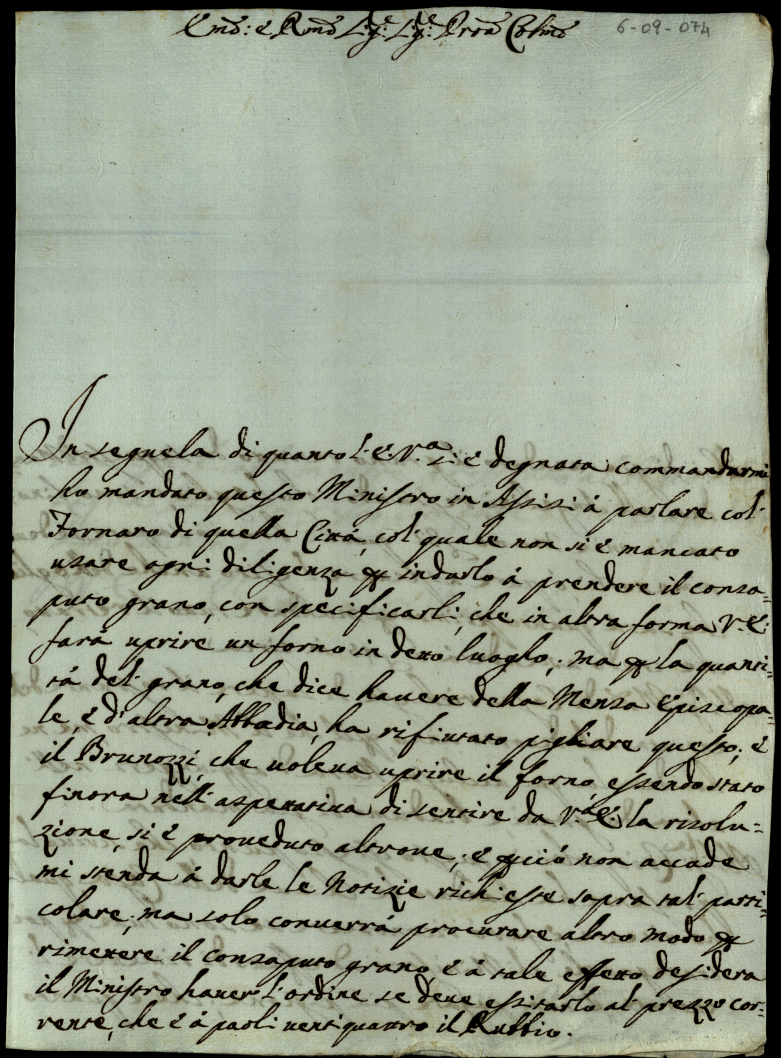 Emo: e Rmo Sig:e Sig:e Prone Colmo 6-09-074
In seguela di quanto l'E. V.a si è degnata commandarmi
ho mandato questo Ministro in Assisi á parlare col
Fornaro di quella Cittá, col quale non si è mancato
usare ogni diligenza p indurlo á prendere il consa-
puto grano, con specificarli, che in altra forma V. E.
fará aprire un forno in detto luogho; ma p la quanti-
tá del grano, che dice havere della Mensa Episcopa-
le, è d'altra Abbadia, ha rifiutato pigliare questo; è
il Brunozzi, che voleva aprire il forno, essendo stato
finora nell'aspettativa di sentire da V.a E. la risolu-
zione, si è proveduto altrove; è pciò non accade
mi stenda á darle le Notizie richieste sopra tal parti-
colare; ma solo converrá procurare altro modo p
rimettere il consaputo grano, è á tale effetto desidera
il Ministro haver l'ordine se deve esitarlo al prezzo cor-
rente, che è á paoli ventiquattro il Rubbio.